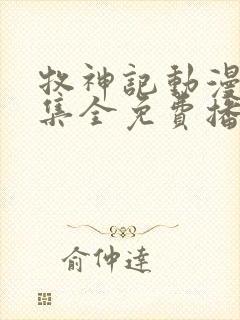 牧神記動漫
集全免費播
俞仲達